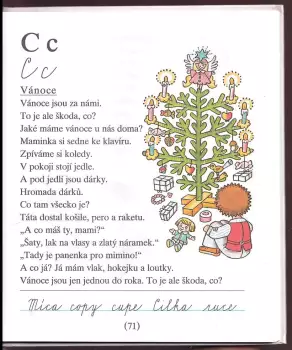 C c
C c
Vánoce
Vánoce jsou za námi.
To je ale škoda, co?
Jaké máme vánoce u nás doma?
Maminka si sedne ke klavíru.
Zpíváme si koledy.
V pokoji stojí jedle.
A pod jedlí jsou dárky.
Hromada dárků.
Co tam všecko je?
Táta dostal košile, pero a raketu.
„A co máš ty, mami?“
„Šaty, lak na vlasy a zlatý náramek.“
„Tady je panenka pro mimino!“
A co já? Já mám vlak, hokejku a loutky.
Vánoce jsou jen jednou do roka. To je ale škoda, co?
Míca copy cupe Cilka ruce
(71)